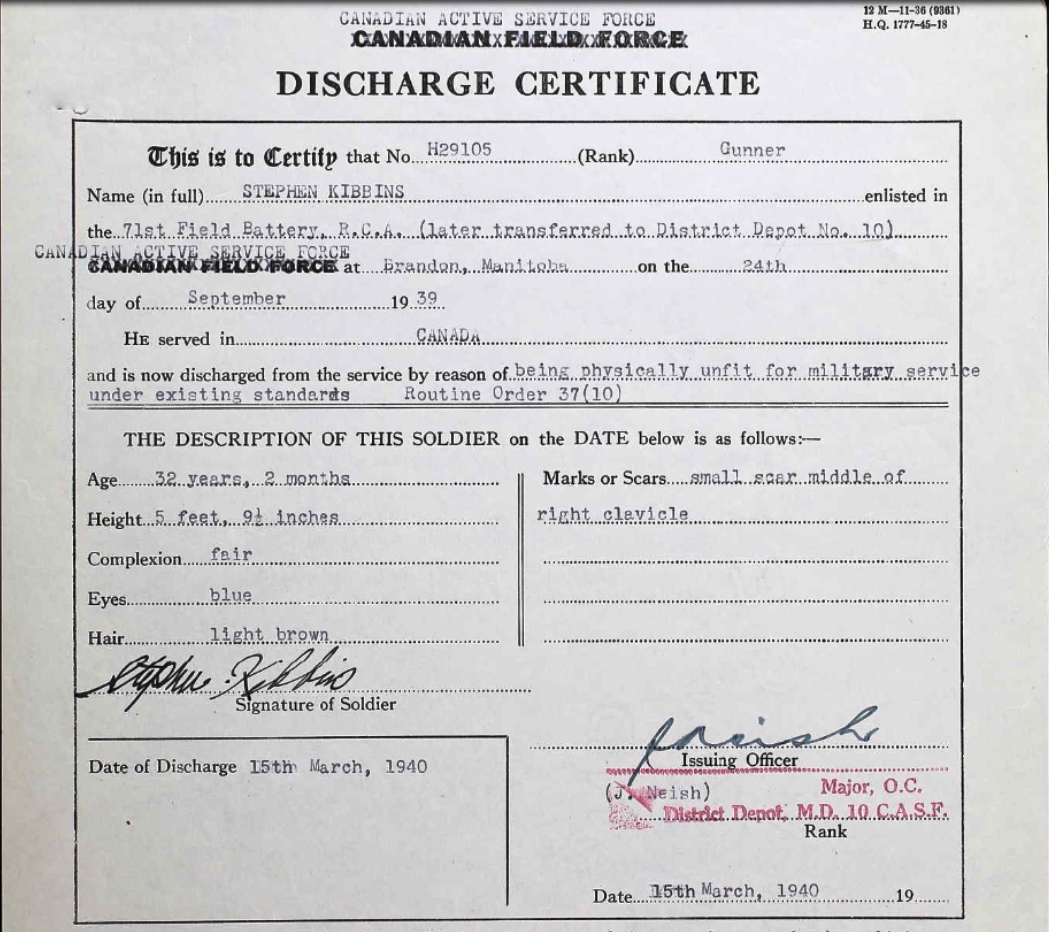 12 M—11-36 (9361)
H.Q. 1777-45-18
CANADIAN ACTIVE SERVICE FORCE
CANADIAN FIELD FORCE
DISCHARGE CERTIFICATE
This is to Certify that No. H29105 (Rank) Gunner
Name (in full) STEPHEN KIBBINS enlisted in
the 71st Field Battery, R.C.A. (later transferred to District Depot No. 10)
CANADIAN ACTIVE SERVICE FORCE
CANADIAN FIELD FORCE at Brandon, Manitoba on the 24th
day of September 19 39
HE served in CANADA
and is now discharged from the service by reason of being physically unfit for military service
under existing standards Routine Order 37(10)
THE DESCRIPTION OF THIS SOLDIER on the DATE below is as follows:—
Age 32 years, 2 months
Height 5 feet, 9½ inches
Complexion fair
Eyes blue
Hair light brown
Marks or Scars small scar middle of
right clavicle
Stephen Kibbins
Signature of Soldier
Date of Discharge 15th March, 1940
J Neish
Issuing Officer
(J. Neish) Major, O.C.
District Depot, M.D. 10 C.A.S.F.
Rank
Date 15th March, 1940 19